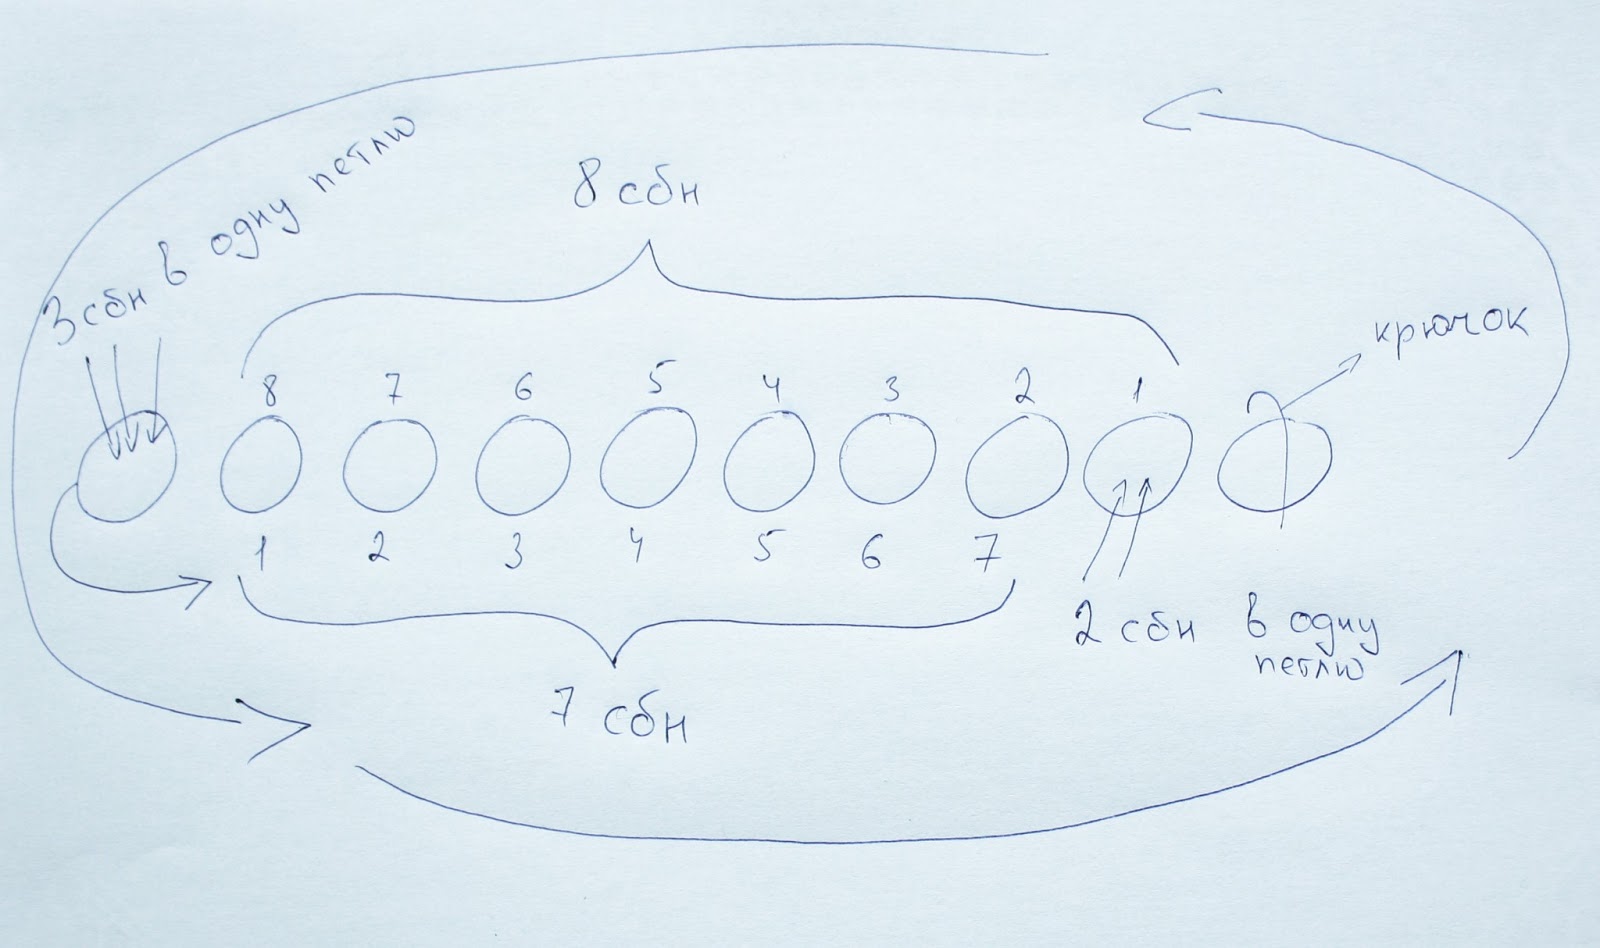 3 сбн в одну петлю
8 сбн
крючок
8 7 6 5 4 3 2 1
1 2 3 4 5 6 7
2 сбн в одну
петлю
7 сбн